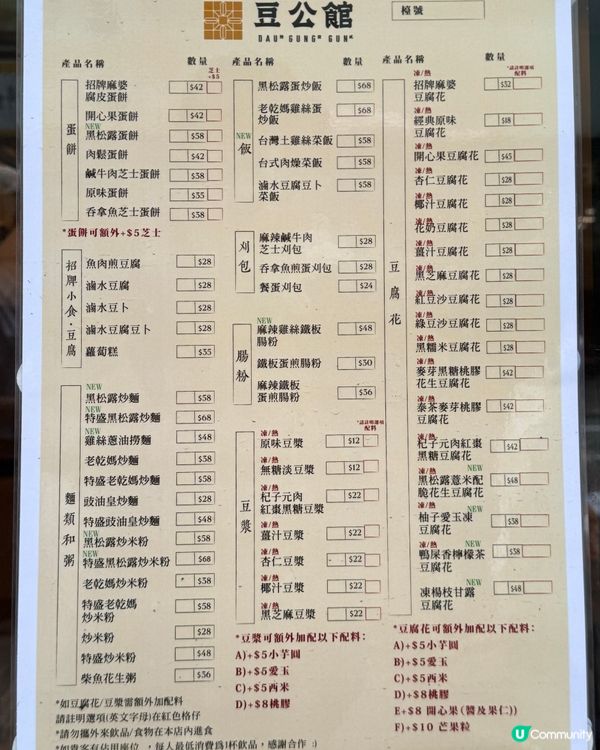 豆公館
DAUᴹ GUNGᴹ GUNᴷ
檯號
產品名稱
數量
芝士
+$5
蛋餅
招牌麻婆
腐皮蛋餅
$42
開心果蛋餅
$42
NEW
黑松露蛋餅
$58
肉鬆蛋餅
$42
鹹牛肉芝士蛋餅
$38
原味蛋餅
$35
吞拿魚芝士蛋餅
$38
*蛋餅可額外+$5芝士
招牌小食·豆腐
魚肉煎豆腐
$28
滷水豆腐
$28
滷水豆卜
$28
滷水豆腐豆卜
$28
蘿蔔糕
$35
麵類和粥
NEW
黑松露炒麵
$58
NEW
特盛黑松露炒麵
$68
NEW
雞絲蔥油撈麵
$48
老乾媽炒麵
$38
特盛老乾媽炒麵
$58
豉油皇炒麵
$28
特盛豉油皇炒麵
$48
NEW
黑松露炒米粉
$58
NEW
特盛黑松露炒米粉
$68
老乾媽炒米粉
$38
特盛老乾媽
炒米粉
$58
炒米粉
$28
特盛炒米粉
$48
柴魚花生粥
$36
*如豆腐花/豆漿需額外加配料
請註明選項(英文字母)在紅色格仔
*請勿攜外來飲品/食物在本店內進食
*如貴客有佔用座位，每人最低消費為1杯飲品，感謝合作 :)
產品名稱
數量
NEW
飯
黑松露蛋炒飯
$68
老乾媽雞絲蛋
炒飯
$68
台灣土雞絲菜飯
$58
台式肉燥菜飯
$58
滷水豆腐豆卜
菜飯
$58
刈包
麻辣鹹牛肉
芝士刈包
$28
吞拿魚煎蛋刈包
$28
餐蛋刈包
$24
腸粉
NEW
麻辣雞絲鐵板
腸粉
$48
鐵板蛋煎腸粉
$30
麻辣鐵板
蛋煎腸粉
$36
*請註明選項
配料
豆漿
凍/熱
原味豆漿
$12
凍/熱
無糖淡豆漿
$12
凍/熱
杞子元肉
紅棗黑糖豆漿
$22
凍/熱
薑汁豆漿
$22
凍/熱
杏仁豆漿
$22
凍/熱
椰汁豆漿
$22
凍/熱
黑芝麻豆漿
$22
*豆漿可額外加配以下配料：
A)+$5小芋圓
B)+$5愛玉
C)+$5西米
D)+$8桃膠
產品名稱
數量
*請註明選項
配料
豆腐花
凍/熱
招牌麻婆
豆腐花
$32
凍/熱
經典原味
豆腐花
$18
凍/熱
開心果豆腐花
$45
凍/熱
杏仁豆腐花
$28
凍/熱
椰汁豆腐花
$28
凍/熱
花奶豆腐花
$28
凍/熱
薑汁豆腐花
$28
凍/熱
黑芝麻豆腐花
$28
凍/熱
紅豆沙豆腐花
$28
凍/熱
綠豆沙豆腐花
$28
凍/熱
黑糯米豆腐花
$28
凍/熱
麥芽黑糖桃膠
花生豆腐花
$42
凍/熱
泰茶麥芽桃膠
豆腐花
$42
凍/熱
杞子元肉紅棗
黑糖豆腐花
$42
凍/熱
NEW
黑松露薏米配
脆花生豆腐花
$48
凍/熱
NEW
柚子愛玉凍
豆腐花
$38
凍/熱
NEW
鴨屎香檸檬茶
豆腐花
$38
NEW
凍楊枝甘露
豆腐花
$48
*豆腐花可額外加配以下配料：
A)+$5小芋圓
B)+$5愛玉
C)+$5西米
D)+$8桃膠
E)+$8 開心果(醬及果仁))
F)+$10 芒果粒
U Community